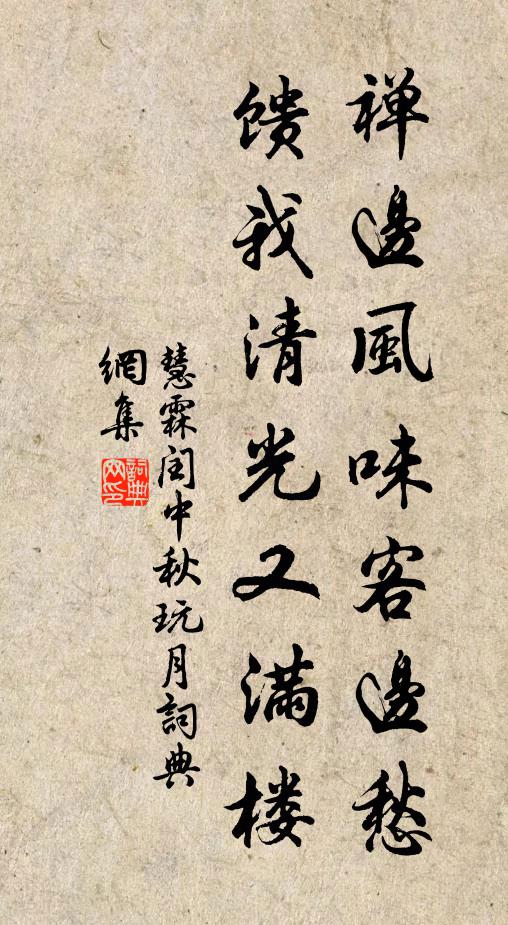 禅邊風味客邊愁
馈我清光又满楼
慧霖闰中秋玩月詞典
網集
詞典
网印